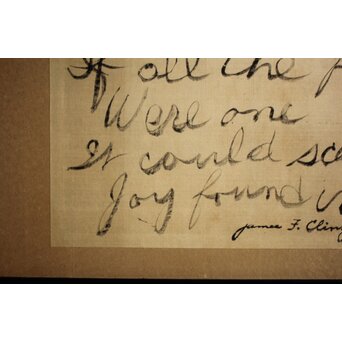 If all the
Were one
It could
Joy found
James F. Cling